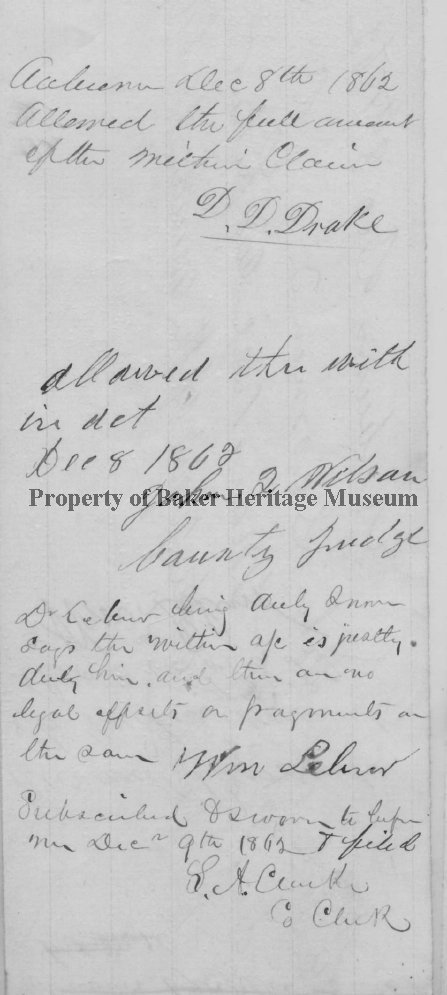 Auburn Dec 8th 1862
Allowed the full amount
of the within Claim
D. D. Drake
allowed the with
in act
Dec 8 1862
John Q Wilson
Property of Baker Heritage Museum
County Judge
Dr Lebur being duly sworn
says the within a/c is justly
due him and there are no
legal offsets or payments on
the same Wm Lebur
Subscribed & sworn to befor
me Decr 9th 1862 & filed
E. A. Clark
Co Clerk